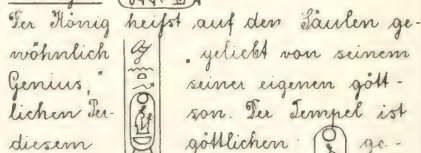 Der König heißt auf den Säulen ge-
wöhnlich „ geliebt von seinem
Genius,“ seiner eigenen gött-
lichen Per- son. Der Tempel ist
diesem göttlichen ge-